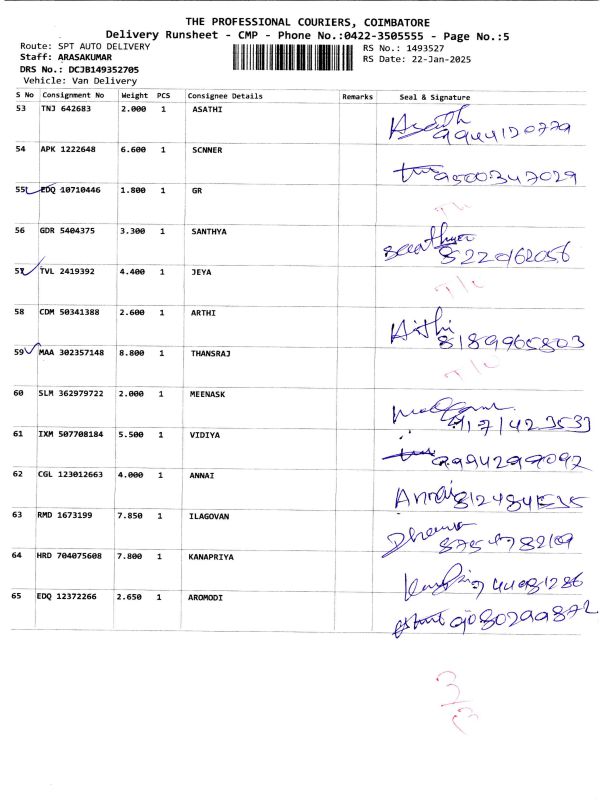 THE PROFESSIONAL COURIERS, COIMBATORE
Delivery Runsheet - CMP - Phone No.:0422-3505555 - Page No.:5
Route: SPT AUTO DELIVERY
RS No.: 1493527
Staff: ARASAKUMAR
RS Date: 22-Jan-2025
DRS No.: DCJB149352705
Vehicle: Van Delivery
S No Consignment No Weight PCS Consignee Details Remarks Seal & Signature
53 TNJ 642683 2.000 1 ASATHI
9944120779
54 APK 1222648 6.600 1 SCNNER
9500347029
55 EDQ 10710446 1.800 1 GR
56 GDR 5404375 3.300 1 SANTHYA
8220162056
57 TVL 2419392 4.400 1 JEYA
58 CDM 50341388 2.600 1 ARTHI
8189965803
59 MAA 302357148 8.800 1 THANSRAJ
60 SLM 362979722 2.000 1 MEENASK
61 IXM 507708184 5.500 1 VIDIYA
9994299092
62 CGL 123012663 4.000 1 ANNAI Annai
63 RMD 1673199 7.850 1 ILAGOVAN
64 HRD 704075608 7.800 1 KANAPRIYA
65 EDQ 12372266 2.650 1 AROMODI
9080299872
3/3